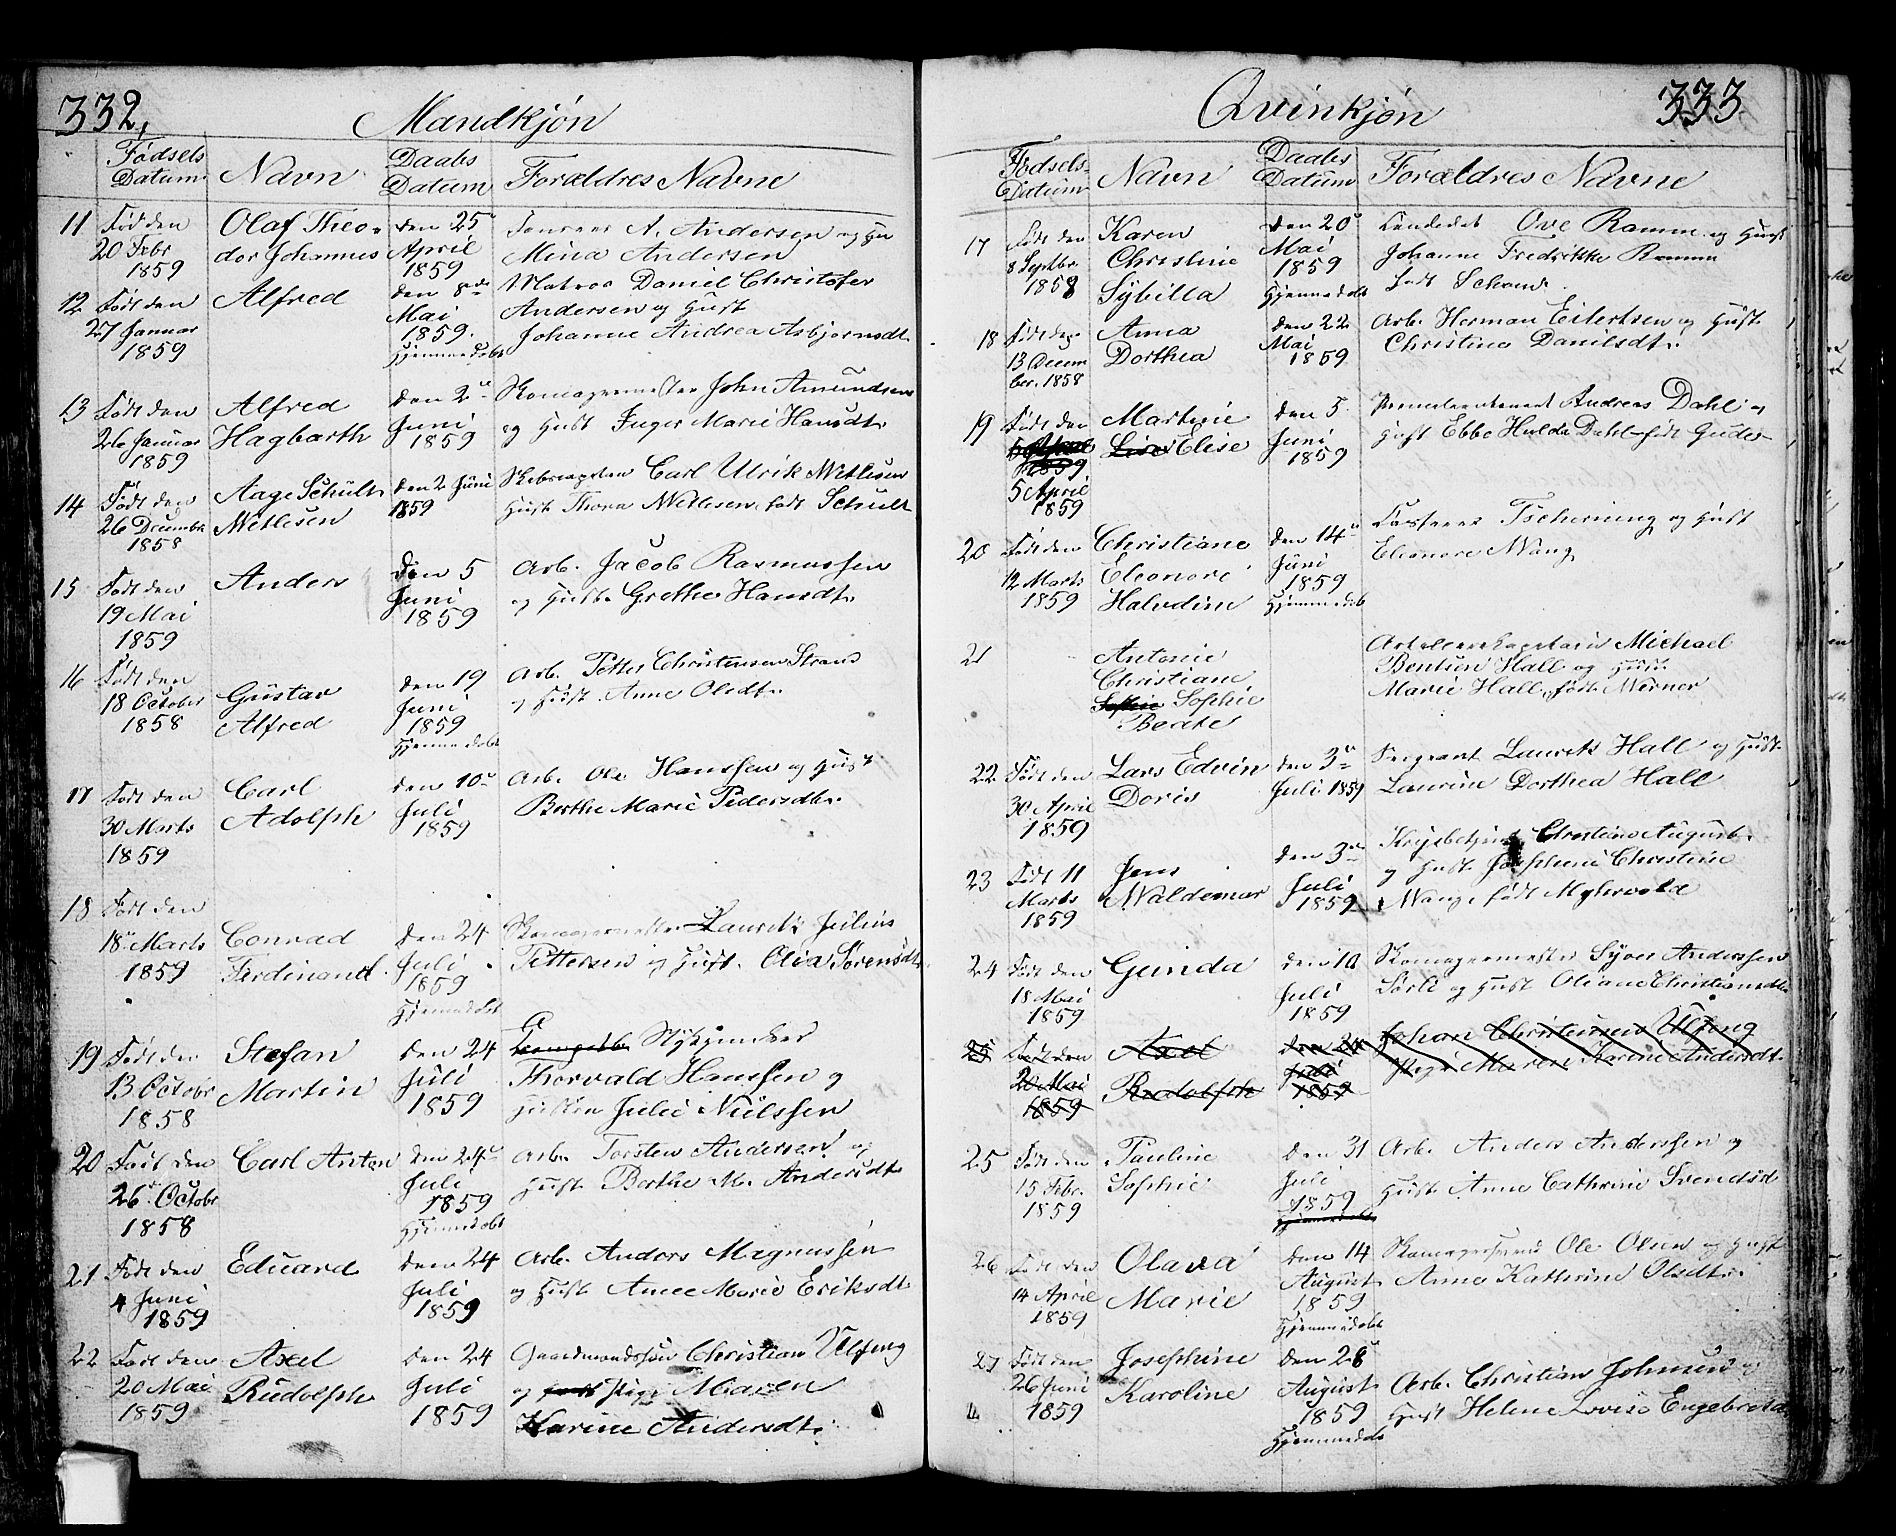 332,
Mandkjøn
Fødsels Datum
Navn
Daabs Datum
Forældres Navne
11
Fød den 20 Febr 1859
Olaf Theo-
dor Johannes
den 25 April 1859
A. Andersen og Hu
Mina Andersen
12
Født den 27 Januar 1859
Alfred
den 8de Mai 1859.
Hjemmedøbt
Matros Daniel Christofer
Andersen og Hust
Johanne Andrea Asbjørnsdt
13
Født den 26 Januar 1859
Alfred
Hagbarth
den 2 Juni 1859
Skomagermester John Amundsen
og Hust Inger Marie Hansdt.
14
Født den 26 Decembr 1858
Aage Schult
Nitlesen
den 2 Juni 1859
Carl Ulrik Nitlesen
Hust Thora Nitlesen født Schult
15
Født den 19 Mai 1859
Anders
Den 5 Juni 1859
Arb. Jacob Rasmussen
og Hust. Grethe Hansdt.
16
Født den 18 October 1858
Gustav
Alfred
den 19 Juni 1859
Hjemmedøbt
Arb. Petter Christensen Strand
og Hust. Anne Olsdt.
17
Født den 30 Marts 1859
Carl
Adolph
den 10 Juli 1859
Arb. Ole Hanssen og Hust
Berthe Marie Pedersdt.
18
Født den 18 Marts 1859
Conrad
Ferdinand.
den 24 Juli 1859
Hjemmedøbt
Skomagermester Laurits Julius
Pettersen og Hust. Olia Sørensdt
19
Født den 13 Octobr 1858
Stefan
Martin
den 24 Juli 1859
Thorvald Hanssen og
Hustru Julie Nielssen
20
Født den 26 Octobr 1858
Carl Anton
den 24 Juli 1859
Hjemmedøbt
Arb. Torsten Andersen og
Hust. Berthe M. Andersdt
21
Født den 4 Juni 1859
Eduard
den 24 Juli 1859
Arb. Anders Magnussen
og Hust Anne Marie Eriksdt.
22
Født den 20 Mai 1859
Axel
Rudolph
den 24 Juli 1859
Gaardmandssøn Christian Ulfeng
og Pige Maren
Karine Andersdt.
Qvinkjøn
333
Fødsels-
Datum
Navn
Daabs Datum
Forældres Navne
17
Født den 8 Septbr. 1858
Karen
Christine
Sybilla
den 20 Mai 1859
Hjemmedøbt
Ove Ramm og Hust
Johanne Fredrikke Ramm
født
18
Født den 13 Decem
ber. 1858
Anna
Dorthea
den 22 Mai 1859.
Arb. Herman Eilertsen og Hust.
Christine Danilsdt.
19
Født den
1859
5 April 1859
Martine
Lise Elise
den 5. Juni 1859
Andreas Dahl og
Hust Ebbe Hulda Dahl født Gude
20
Født den 12 Marts 1859
Christiane
Eleonore
Halvdine
den 14 Juni 1859
Hjemmedøbt
Tscherning og Hust
Eleonore Wang
21
Antonie
Christiane
Sophie Sophie
Beate
Michael
Bentzen Hall og Hust
Marie Hall, født Werner
22
Født den 30 April 1859
Lars Edvin
Doris
den 3 Juli 1859
Sergeant Laurits Hall og Hust.
Laurine Dorthea Hall
23
Født 11 Marts 1859
Jens
Waldemar
den 3 Juli 1859
Christian August
og Hust Josephine Christine
Wang, født Myhrvold
24
Født den 18 Mai 1859
Gunda
den 10 Juli 1859
Skomagermester Syver Anderssen
Sørli og Hust Oliane Christiansdt.
25
Født den 20 Mai 1859
Axel
Rudolph
den 24 Juli 1859
Johan Christensen Ulfeng
Pige Maren Karine Andersdt.
25
Født den 15 Febr. 1859
Pauline
Sophie
den 31 Juli 1859
Hjemmedøbt
Arb. Anders Anderssen og
Hust. Anne Cathrine Svendsd
26
Født den 14 April 1859
Olava
Marie
den 14 August 1859
Hjemmedøbt
Skomagersvend Ole Olsen og Hust
Anna Kathrine Olsdt.
27
Født den 26 Juni 1859
Josephine
Karoline
den 28 August 1859
Hjemmedøbt
Arb. Christian Johnsen og
Hust Helene Lovise Engebretsd